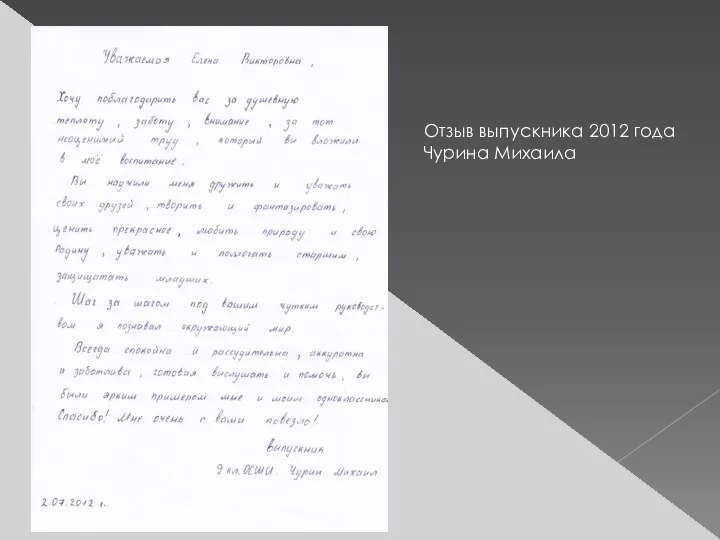 Уважаемая Елена Викторовна,
Хочу поблагодарить вас за душевную
теплоту, заботу, внимание, за тот
неоценимый труд, который вы вложили
в моё воспитание.
Вы научили меня дружить и уважать
своих друзей, творить и фантазировать,
ценить прекрасное, любить природу и свою
Родину, уважать и помогать старшим,
защищать младших.
Шаг за шагом под вашим чутким руководст-
вом я познавал окружающий мир.
Всегда спокойна и рассудительна, аккуратна
и заботлива, готовая выслушать и помочь, вы
были ярким примером мне и моим одноклассникам
Спасибо! Мне очень с вами повезло!
Выпускник
9 кл. ОСШИ. Чурин Михаил
2.07.2012 г.
Отзыв выпускника 2012 года
Чурина Михаила